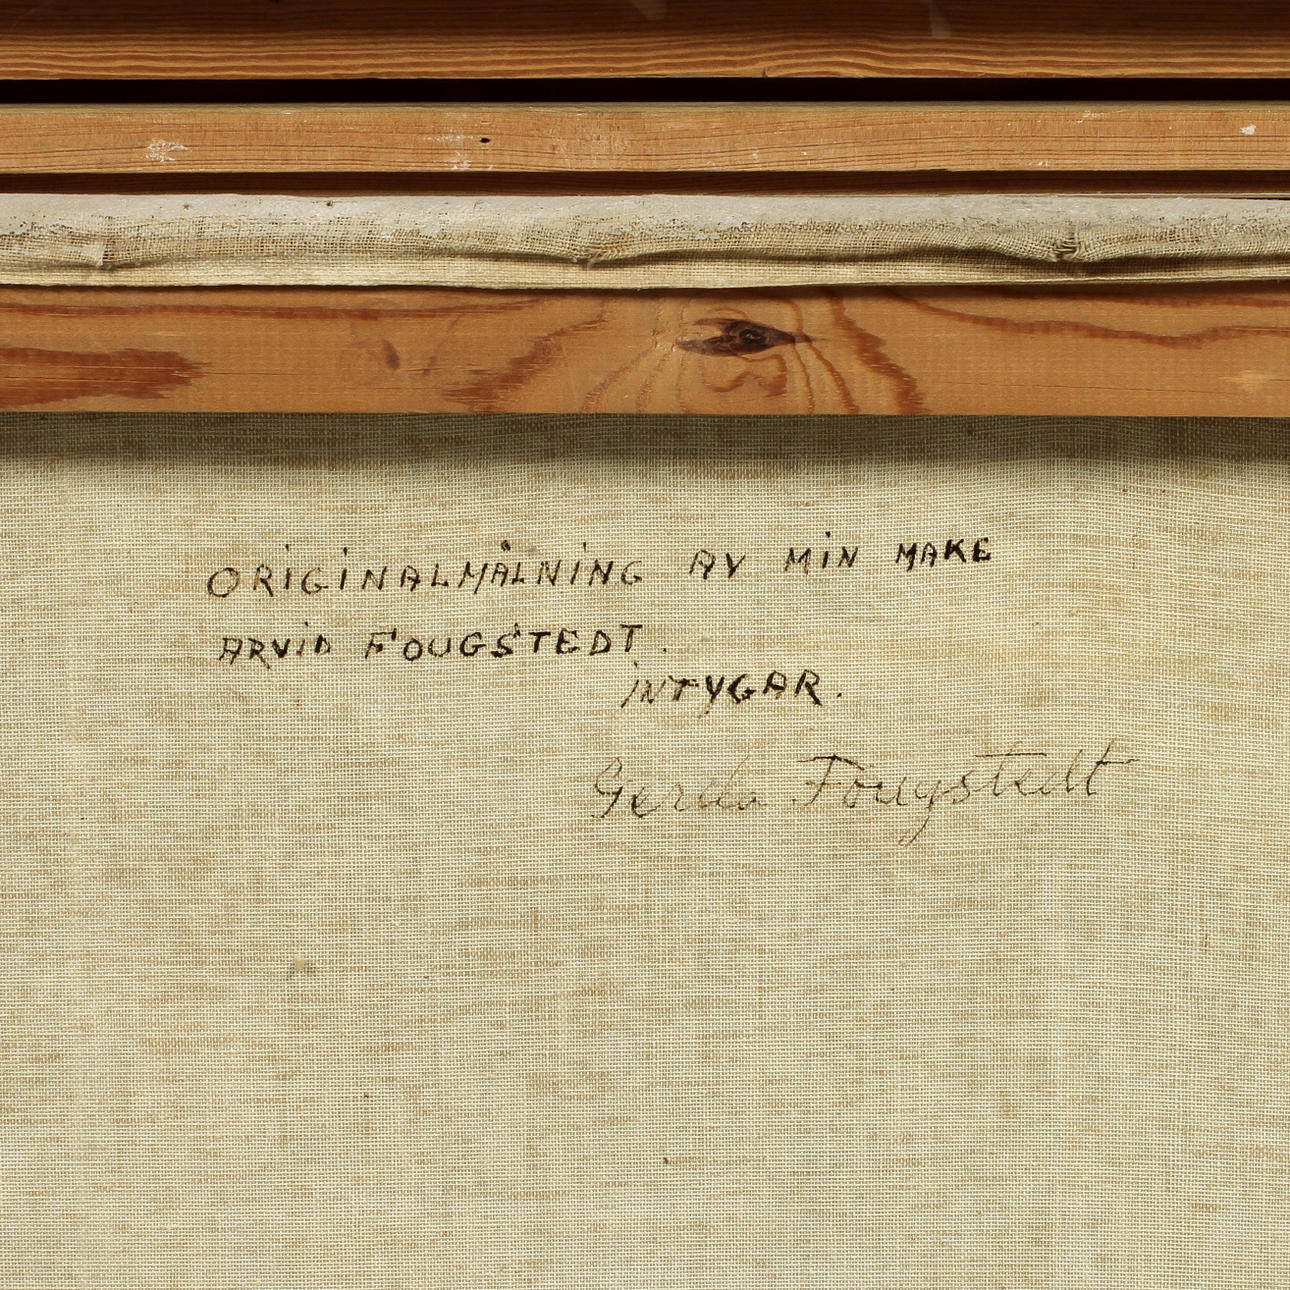 ORIGINALMÅLNING AV MIN MAKE
ARVID FOUGSTEDT.
INTYGAR.
Gerda Fougstedt